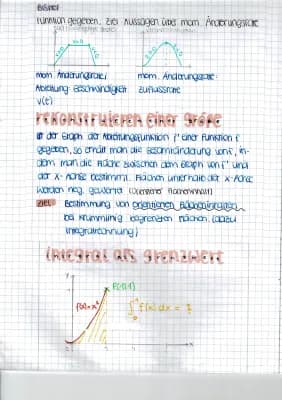 Bisher:
Funktion gegeben, Ziel Aussagen über mom. Änderungsrate
mom. Änderungsrate/ mom. Änderungsrate:
Ableitung: Geschwindigkeit Zuflussrate
v(t)
rekonstruieren einer Größe
Ist der Graph der Ableitungsfunktion f' einer Funktion f
gegeben, so erhält man die Gesamtänderung von f, in-
dem man die Fläche zwischen dem Graph von f' und
der x-Achse bestimmt. Flächen unterhalb der x-Achse
werden neg. gewertet (orientierter Flächeninhalt)
Ziel: Bestimmung von orientierten Flächeninhalten
bei krummlinig begrenzten Flächen (dazu
Integralrechnung)
Integral als Grenzwert
y
P(1|1)
f(x)=x²
∫₀¹ f(x) dx = ?
x